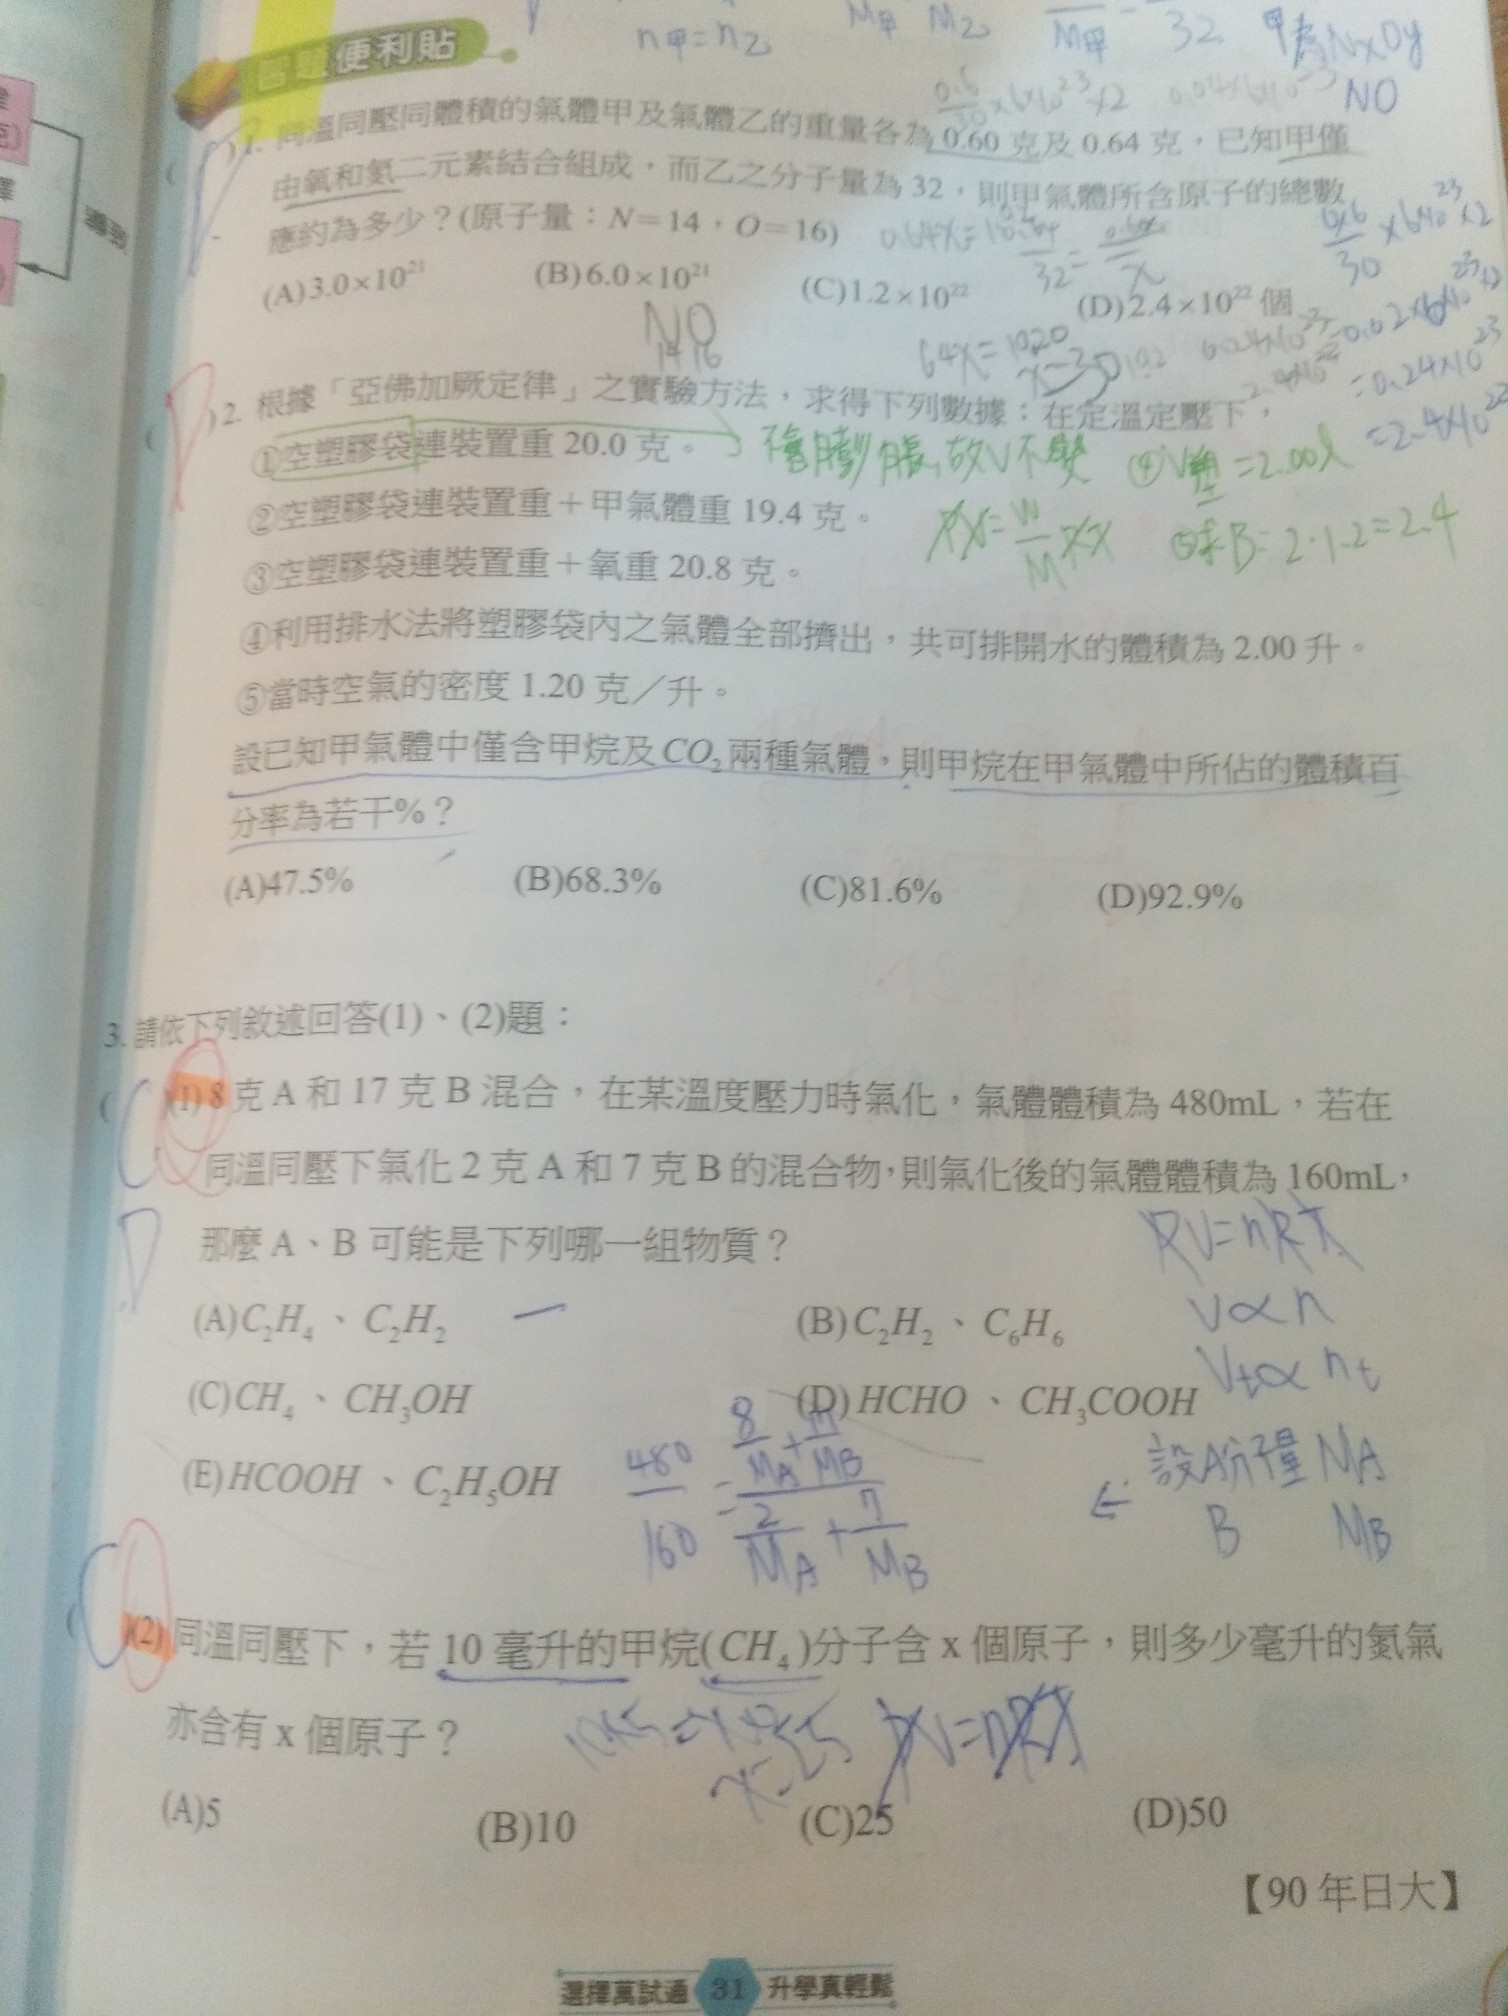 n甲=n乙
M甲 M乙
M甲
32
甲為NxOy
NO
習題便利貼
1. 同溫同壓同體積的氣體甲及氣體乙的重量各為 0.60 克及 0.64 克,已知甲僅
由氧和氮二元素結合組成,而乙之分子量為 32,則甲氣體所含原子的總數
應約為多少?(原子量:N=14,O=16)
(A)3.0×10²¹ (B)6.0×10²¹ (C)1.2×10²² (D)2.4×10²² 個
NO
14 16
64x=1920
=0.24×10²³
=2.4×10²²
D )2. 根據「亞佛加厥定律」之實驗方法,求得下列數據:在定溫定壓下,
①空塑膠袋連裝置重 20.0 克。
不會膨脹,故V不變 ④V塑=2.00l
②空塑膠袋連裝置重+甲氣體重 19.4 克。
③空塑膠袋連裝置重+氧重 20.8 克。
⑤求B=2·1.2=2.4
④利用排水法將塑膠袋內之氣體全部擠出,共可排開水的體積為 2.00 升。
⑤當時空氣的密度 1.20 克/升。
設已知甲氣體中僅含甲烷及CO₂兩種氣體,則甲烷在甲氣體中所佔的體積百
分率為若干%?
(A)47.5% (B)68.3% (C)81.6% (D)92.9%
3. 請依下列敘述回答(1)、(2)題:
( C )(1) 8 克 A 和 17 克 B 混合,在某溫度壓力時氣化,氣體體積為 480mL,若在
同溫同壓下氣化 2 克 A 和 7 克 B 的混合物,則氣化後的氣體體積為 160mL,
那麼 A、B 可能是下列哪一組物質?
D
PV=nRT
(A)C₂H₄、C₂H₂ (B)C₂H₂、C₆H₆
V∝n
(C)CH₄、CH₃OH (D)HCHO、CH₃COOH
Vt∝nt
(E)HCOOH、C₂H₅OH
480/160 = (8/MA+17/MB)/(2/MA+7/MB)
← 設A分子量 MA
B MB
( C )(2) 同溫同壓下,若 10 毫升的甲烷(CH₄)分子含 x 個原子,則多少毫升的氮氣
亦含有 x 個原子?
PV=nRT
(A)5 (B)10 (C)25 (D)50
【90 年日大】
選擇萬試通 31 升學真輕鬆